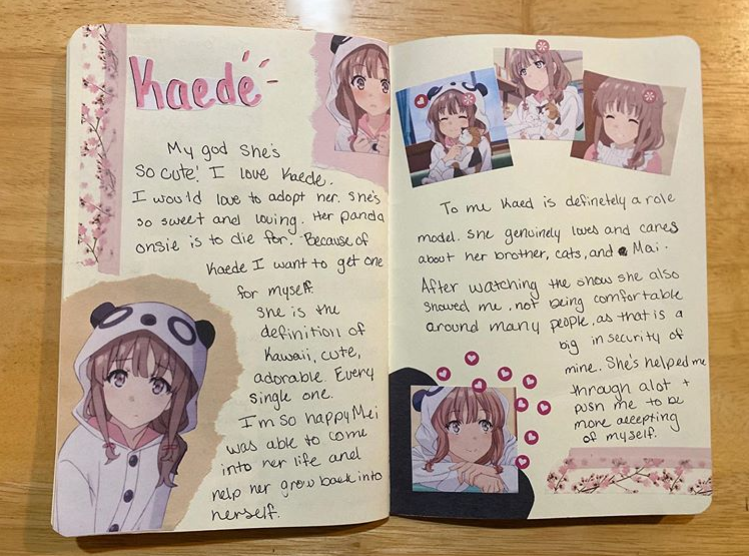 Kaede
My god she's
so cute! I love Kaede.
I would love to adopt her. She's
so sweet and loving. Her panda
onsie is to die for. Because of
Kaede I want to get one
for myself.
She is the
definition of
Kawaii, cute,
adorable. Every
single one.
I'm so happy Mei
was able to come
into her life and
help her grow back into
herself.
To me Kaed is definetely a role
model. She genuinely loves and cares
about her brother, cats, and Mai.
After watching the show she also
showed me, not being comfortable
around many people, as that is a
big in security of
mine. She's helped me
through alot +
push me to be
more accepting
of myself.